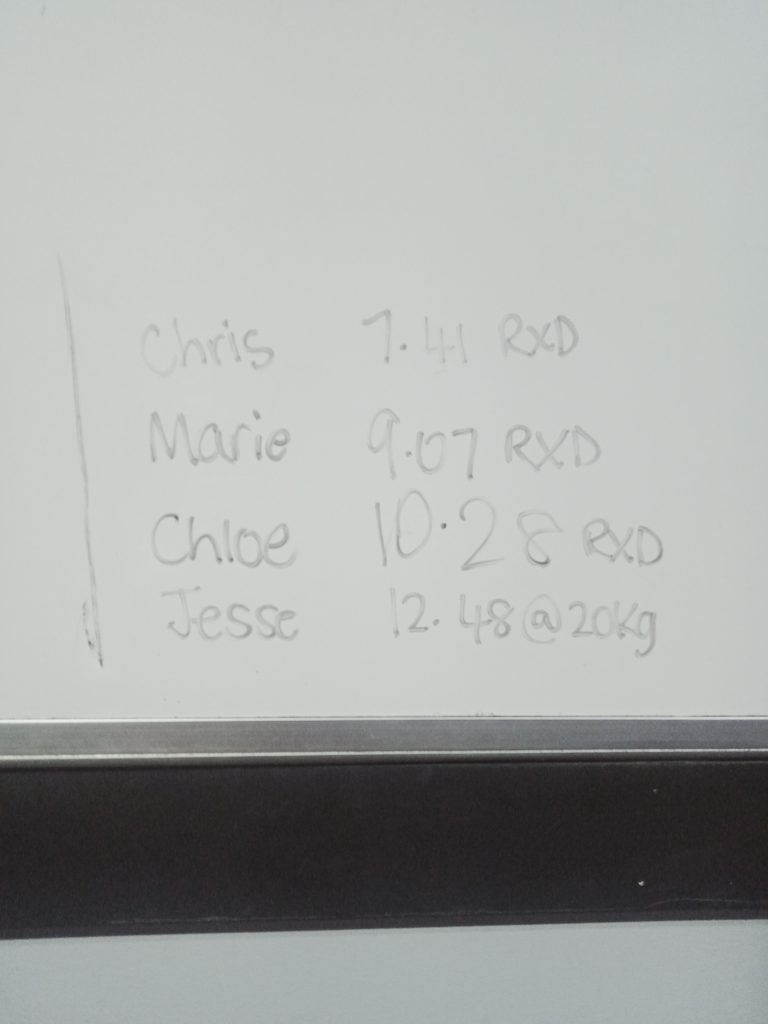 Chris 7.41 RXD
Marie 9.07 RXD
Chloe 10.28 RXD
Jesse 12.48 @ 20Kg